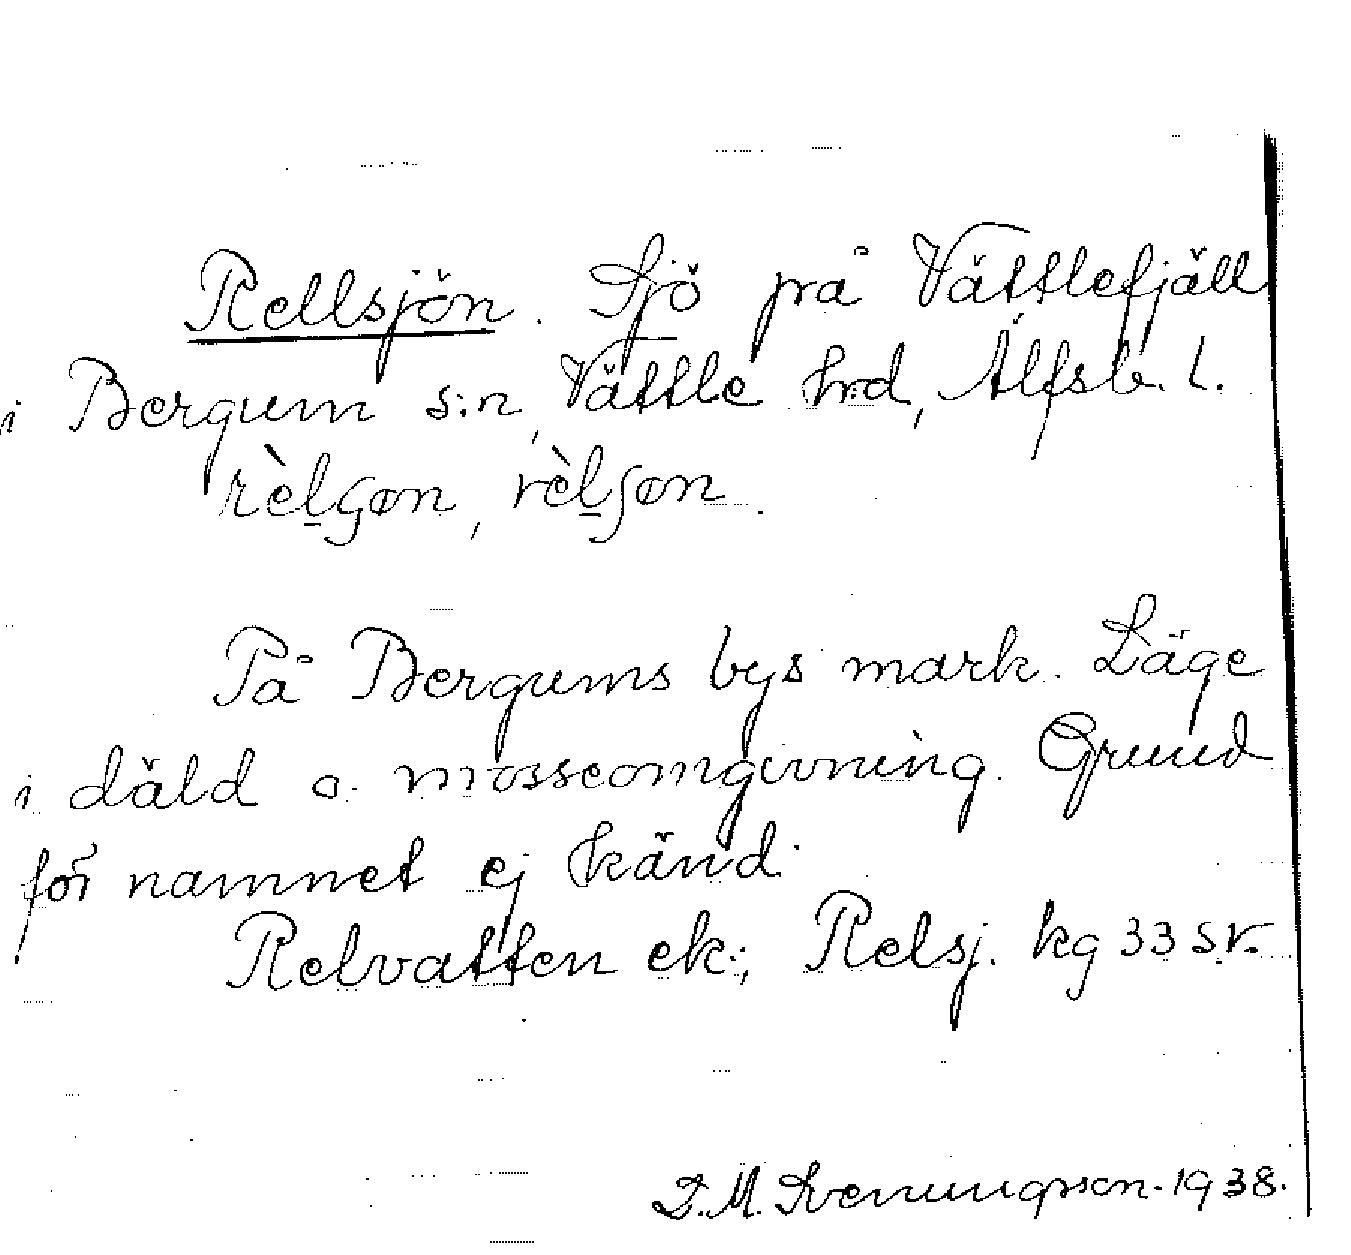 Rellsjön. Sjö på Vättlefjäll
i Bergum s:n, Vättle hrd, Älfsb. l.
rèl̠ʃøn, rèl̠ʃøn.
På Bergums bys mark. Läge
i däld o. mosseomgivning. Grund
för namnet ej känd.
Relvatten ek.; Relsj. kg 33 sv.
D. M. Svenungsson. 1938.